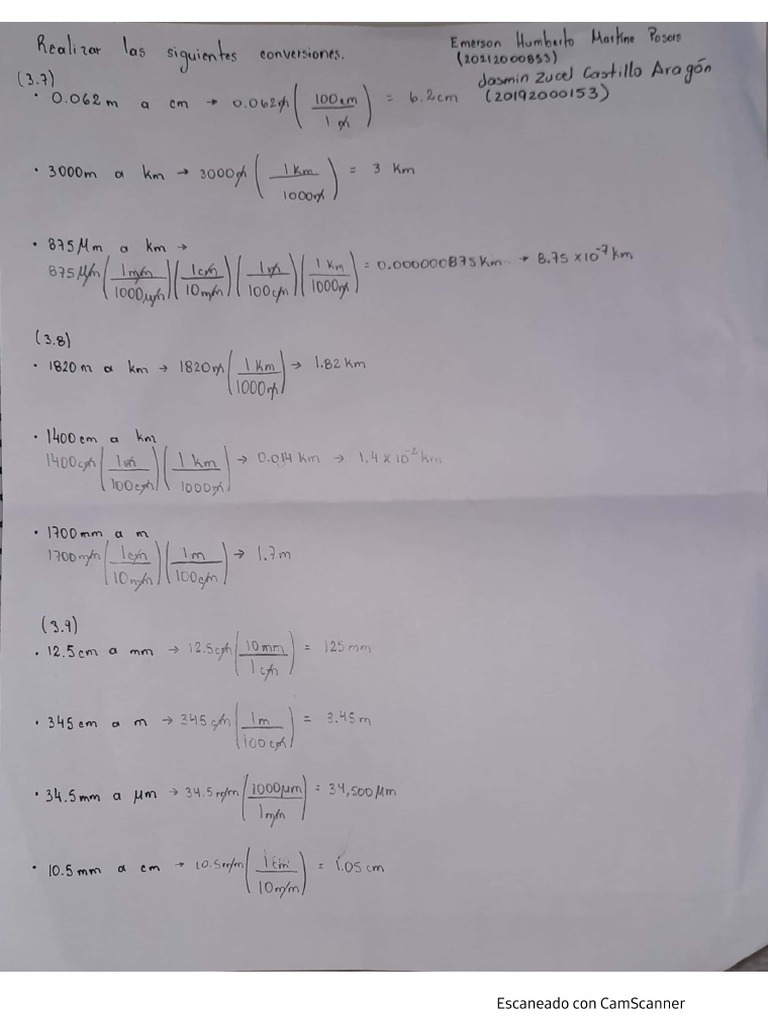 Realizar las siguientes conversiones.
Emerson Humberto Martine Posors
(20212000853)
Jasmin Zucel Castillo Aragón
(20192000153)
(3.7)
• 0.062 m a cm → 0.062m (100cm / 1 m) = 6.2 cm
• 3000m a km → 3000m (1 km / 1000m) = 3 Km
• 875 μm a km →
875 μm (1 mm / 1000 μm) (1cm / 10mm) (1m / 100cm) (1 km / 1000m) = 0.000000875 Km → 8.75 x 10⁻⁷ km
(3.8)
• 1820 m a km → 1820 m (1 Km / 1000m) → 1.82 Km
• 1400 cm a km
1400cm (1m / 100cm) (1 km / 1000m) → 0.014 km → 1.4 x 10⁻² km
• 1700 mm a m
1700mm (1cm / 10mm) (1m / 100cm) → 1.7 m
(3.9)
• 12.5 cm a mm → 12.5cm (10mm / 1 cm) = 125 mm
• 345 cm a m → 345 cm (1m / 100 cm) = 3.45 m
• 34.5 mm a μm → 34.5 mm (1000μm / 1mm) = 34,500 μm
• 10.5 mm a cm → 10.5mm (1 cm / 10mm) = 1.05 cm
Escaneado con CamScanner